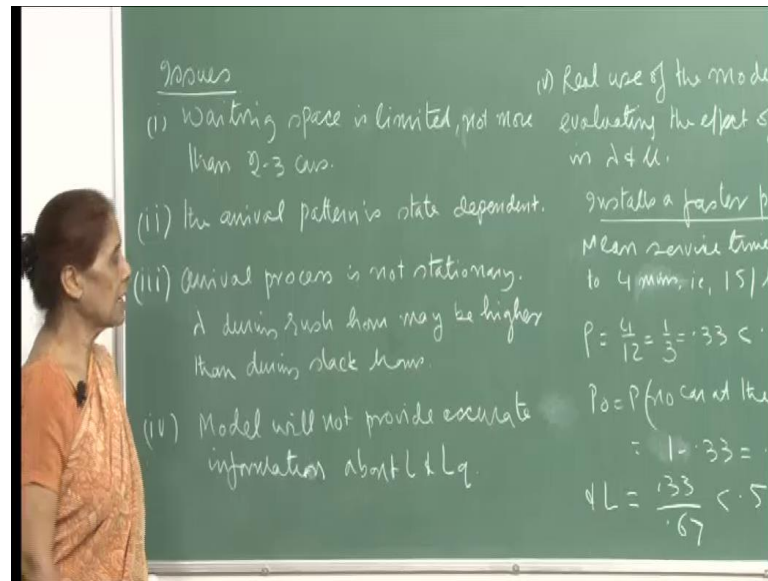 Issues
(i) Waiting space is limited, not more
than 2-3 cars.
(ii) the arrival pattern is state dependent.
(iii) arrival process is not stationary.
λ during rush hour may be higher
than during slack hours.
(iv) Model will not provide accurate
information about L & Lq.
(v) Real use of the mode
evaluating the effect of
in λ & μ.
Installs a faster p
Mean service time
to 4 min, ie, 15/
ρ = 4/12 = 1/3 = .33 < .
P0 = P(no car at the
= 1 - .33 = .
& L = .33/.67 < .5